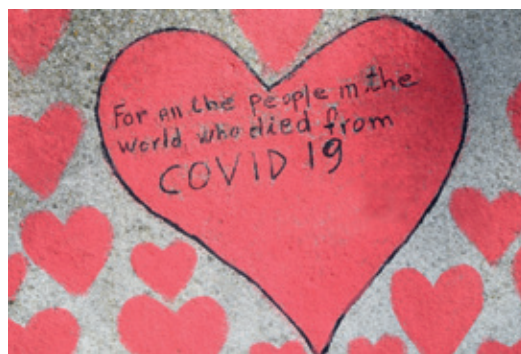 For all the people in the
World, who died from
COVID 19